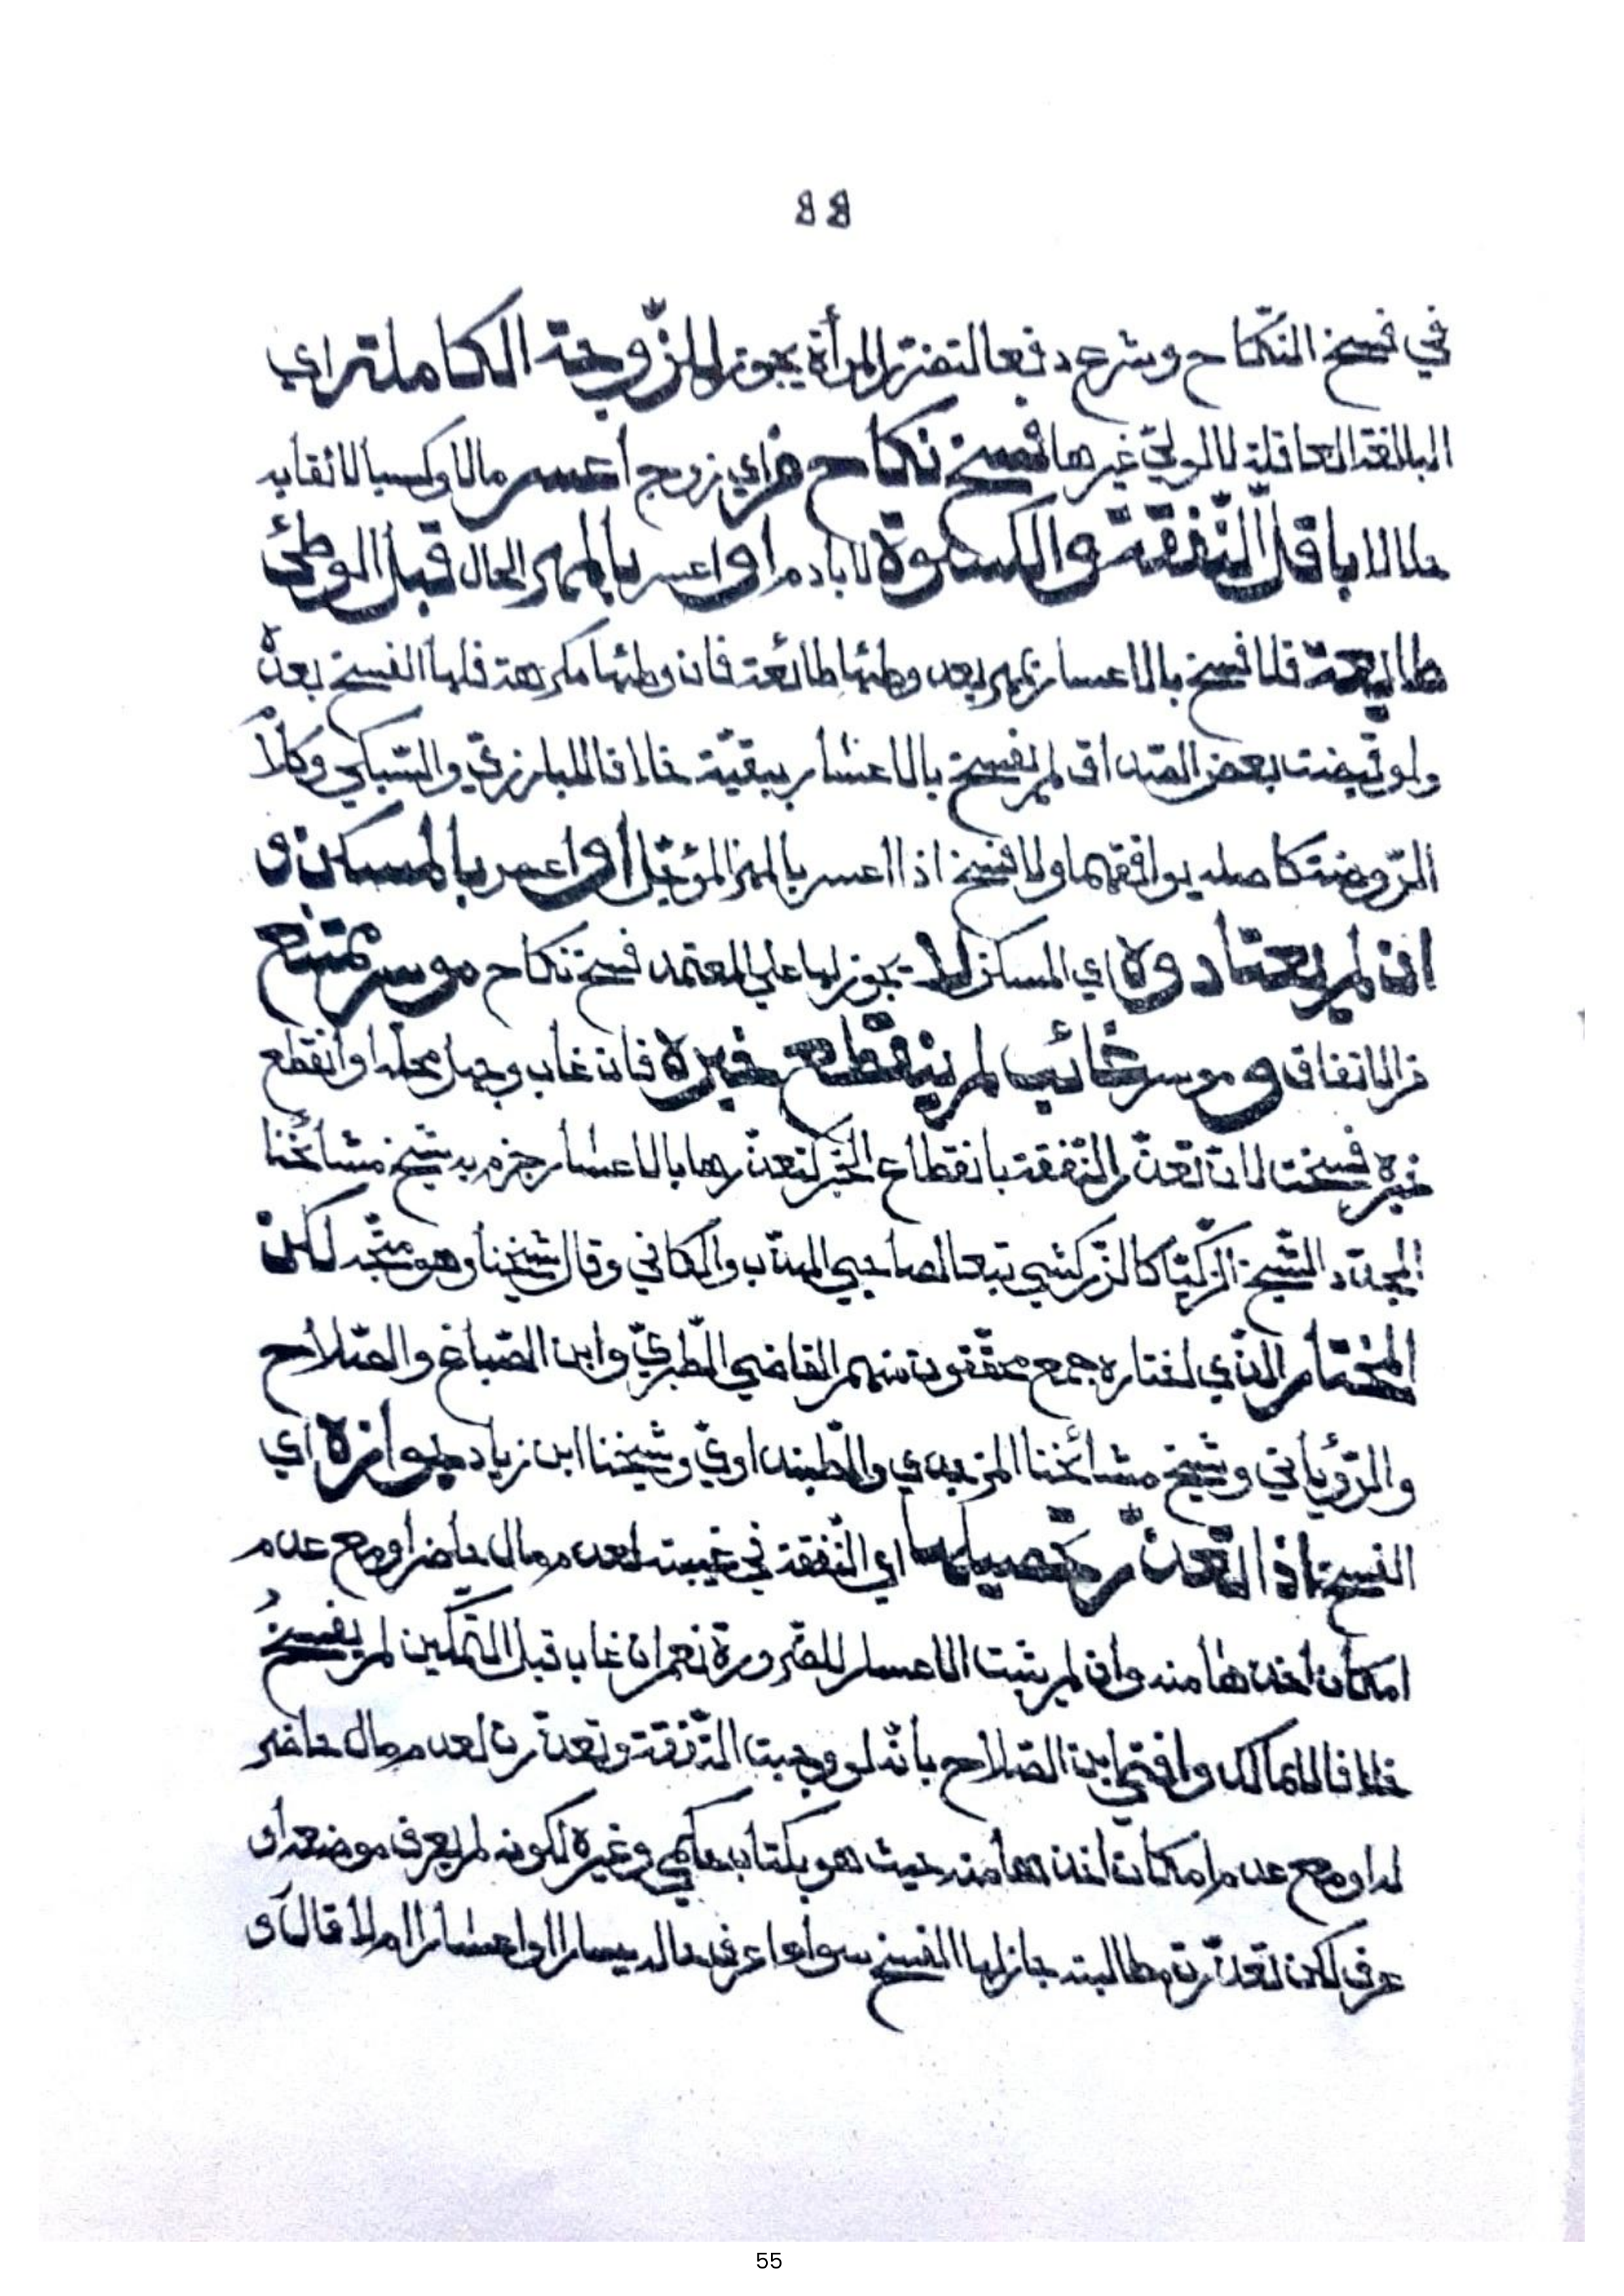 ٥٥
في فسخ النّكاح وشرع دفعا لتضرّر المرأة يجوز للزّوجة الكاملة اي
البالغة العاقلة لا لوليّ غيرها فسخ نكاح من اي زوج اعسر مالا وكسبا لائقا به
حلالا باقلّ النّفقة والكسوة لا بادم او اعسر بالمهر الحال قبل الوطئ
طائعة فلا فسخ بالاعسار بمهر بعد وطئها طائعة فان وطئها مكرهة فلها الفسخ بعده
ولو قبضت بعض الصّداق لم يفسخ بالاعسار ببقيّة خلافا للبارزيّ والسّبكي وكلام
الرّوضة كاصله يوافقهما ولا فسخ اذا اعسر بالمهر المؤجّل او اعسر بالمسكن و
ان لم يعتادوه اي المسكن لا يجوز لها على المعتمد فسخ نكاح موسر ممتنع
من الانفاق و موسر غائب لم ينقطع خبره فان غاب وجهل محلّه او انقطع
خبره فسخت لان تعذّر النّفقة بانقطاع الخبر كتعذّرها بالاعسار جزم به شيخ مشائخنا
المجدّد الشّيخ الزّكيّا كالزّركشي تبعا لصاحبي المهذّب والكافي وقال شيخنا وهو متّجه لكن
المختار الذي اختاره جمع محقّقون منهم القاضي الطّبريّ وابن الصّباغ والصّلاح
والرّويانيّ وشيخ مشائخنا المزجدي والطّبنداويّ وشيخنا ابن زياد جوازه اي
الفسخ اذا تعذّر تحصيلها اي النّفقة في غيبته لعدم مال حاضر او مع عدم
امكان اخذها منه وان لم يثبت الاعسار للضّرورة نعم ان غاب قبل التّمكين لم يفسخ
خلافا لمالك وافتى ابن الصّلاح بانّه لو وجبت النّفقة وتعذّرت لعدم مال حاضر
له او مع عدم امكان اخذها منه حيث هو بكتاب حكمي وغيره لكونه لم يعرف موضعه او
عرف لكن تعذّرت مطالبته جاز لها الفسخ سواءا عرف حاله يسارا او اعسارا ام لا قال و
55